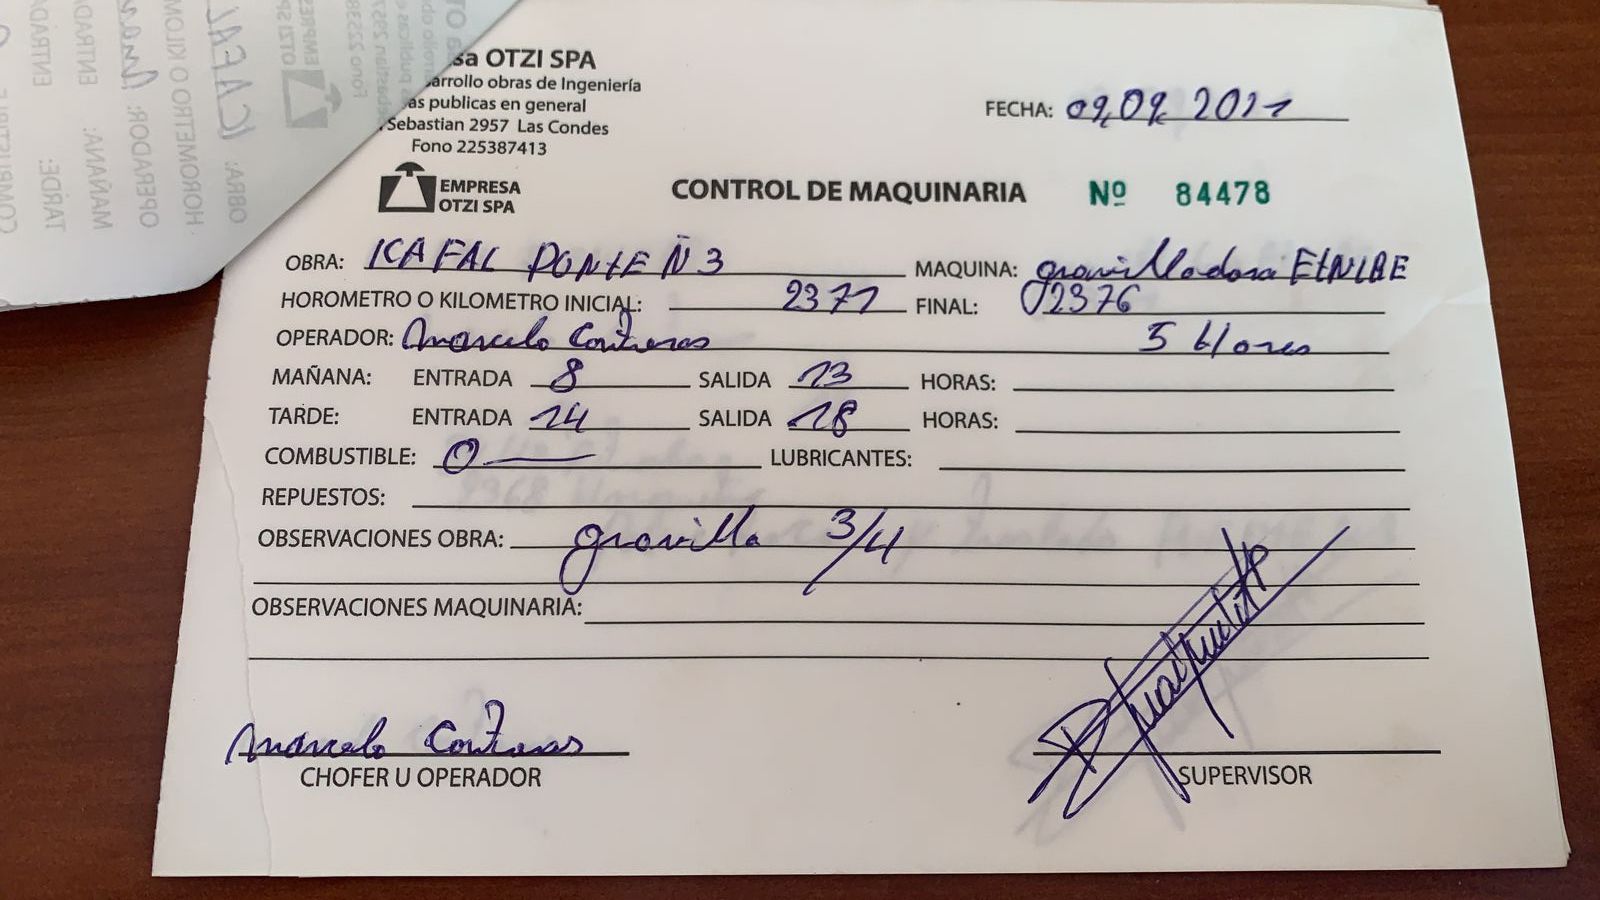 sa OTZI SPA
arrollo obras de Ingeniería
as publicas en general
Sebastian 2957 Las Condes
Fono 225387413
FECHA: 09,09, 2021
EMPRESA
OTZI SPA
CONTROL DE MAQUINARIA Nº 84478
OBRA: ICAFAL PONTE Ñ 3 MAQUINA: gravilladora ETNYRE
HOROMETRO O KILOMETRO INICIAL: 2371 FINAL: 2376
OPERADOR: Marcelo Contreras 5 Hores
MAÑANA: ENTRADA 8 SALIDA 13 HORAS:
TARDE: ENTRADA 14 SALIDA 18 HORAS:
COMBUSTIBLE: 0 LUBRICANTES:
REPUESTOS:
OBSERVACIONES OBRA: gravilla 3/4
OBSERVACIONES MAQUINARIA:
Marcelo Contreras
CHOFER U OPERADOR
SUPERVISOR
OBRA:
HOROMETRO O KILOM
OPERADOR:
MAÑANA: ENTRADA
TARDE: ENTRADA